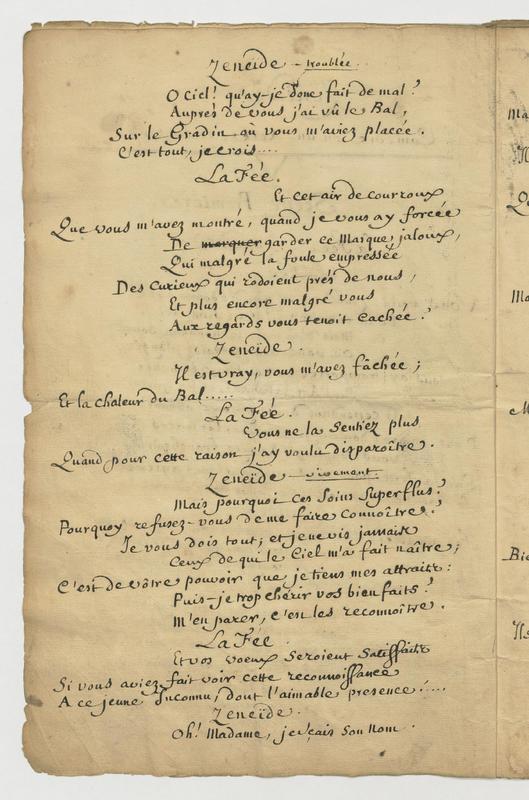 Zeneïde – troublée.
O Ciel! qu'ay-je donc fait de mal?
Auprès de vous j'ai vû le Bal,
Sur le Gradin ou vous m'aviez placée.
C'est tout, je crois....
La Fée.
Et cet air de courroux
Que vous m'avez montré, quand je vous ay forcée
De marquer garder ce Masque jaloux,
Qui malgré la foule empressée
Des Curieux qui rodoient près de nous,
Et plus encore malgré vous
Aux regards vous tenoit cachée?
Zeneïde.
Il est vray, vous m'avez fâchée;
Et la chaleur du Bal.....
La Fée.
Vous ne la sentiez plus
Quand pour cette raison j'ay voulu disparoître.
Zeneïde – vivement.
Mais pourquoi ces soins superflus?
Pourquoy refusez-vous de me faire connoître?
Je vous dois tout; et je ne vis jamais
Ceux de qui le Ciel m'a fait naître;
C'est de vôtre pouvoir que je tiens mes attraits:
Puis-je trop chérir vos bienfaits?
M'en parer, c'est les reconnoître.
La Fée
Et vos voeux seroient satisfaits
Si vous aviez fait voir cette reconnoissance
A ce jeune Inconnu, dont l'aimable presence!....
Zeneïde.
Oh! Madame, je sçais son nom.
Ma